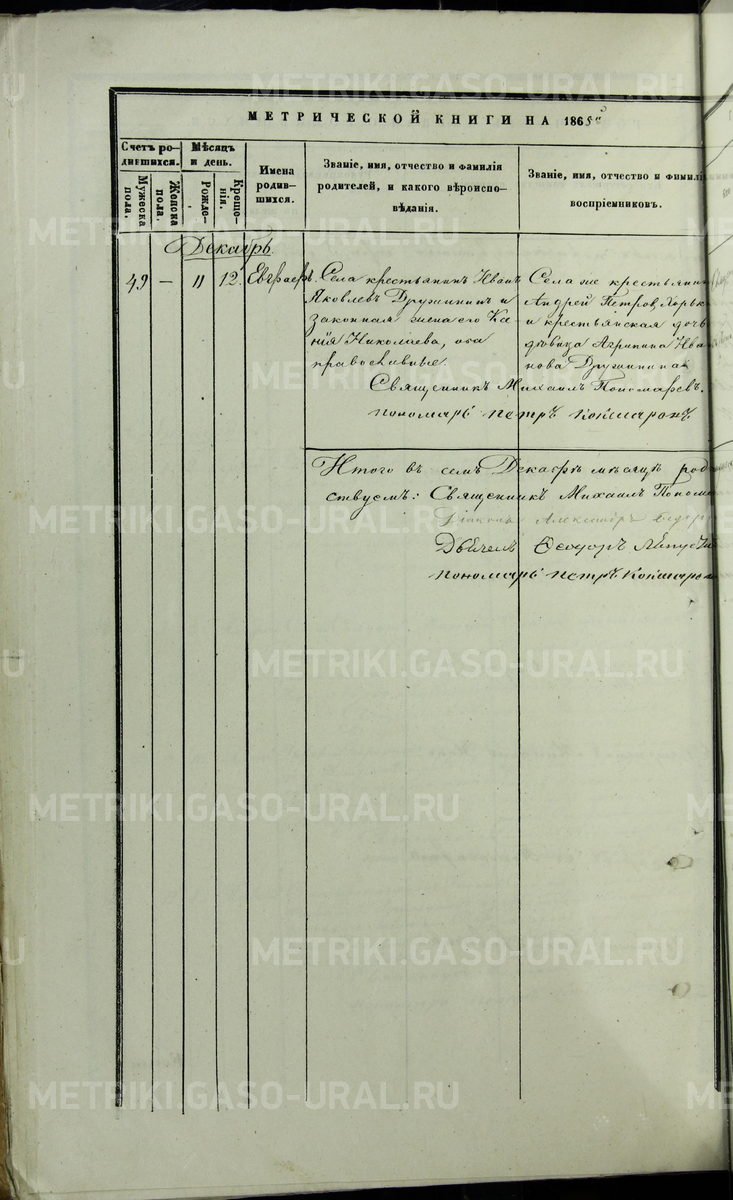 МЕТРИЧЕСКОЙ КНИГИ НА 1865й
Счетъ ро-
дившихся.
Мужеска
пола.
Женска
пола.
Мѣсяцъ
и день.
Рожде-
Креще-
нія.
Имена
родив-
шихся.
Званіе, имя, отчество и фамилія
родителей, и какого вѣроиспо-
вѣданія.
Званіе, имя, отчество и фимилі
воспріемниковъ.
Декабрь
49 — 11 12.
Села крестьянинъ Иванъ
Яковлевъ Дружининъ и
законная жена его Ксе-
нія Николаева, оба
православные.
Села же крестьянин
Андрей Петровъ
и крестьянская дочь
дѣвица Агрипина Ива
нова Дружинина
Священникъ Михаилъ Пономаревъ.
Пономарь Петръ Кокшаровъ
Итого въ семъ Декабрѣ мѣсяцѣ род
ствуемъ: Священникъ Михаилъ Поном
Діаконъ Александръ Ѳедор
Ѳеодоръ
Пономарь Петръ Кокшаров
METRIKI.GASO-URAL.RU
METRIKI.GASO-URAL.RU
METRIKI.GASO-URAL.RU
METRIKI.GASO-URAL.RU
METRIKI.GASO-URAL.RU
METRIKI.GASO-URAL.RU
METRIKI.GASO-URAL.RU
METRIKI.GASO-URAL.RU